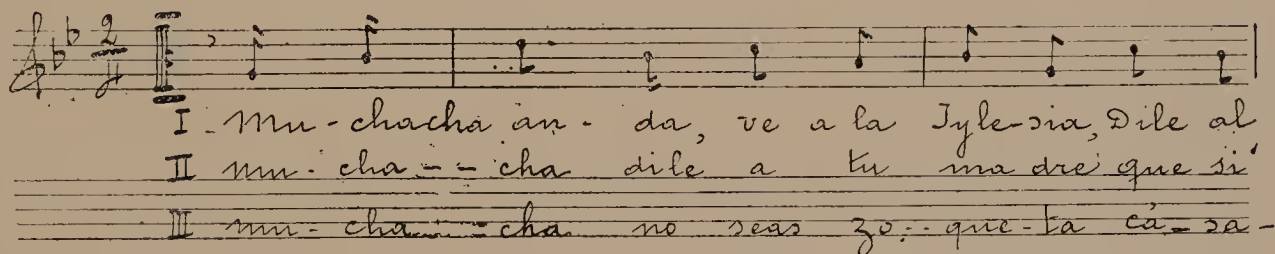 2
4
I. Mu-chacha an-da, ve a la Iyle-sia, Dile al
II mu-cha--cha dile a tu madre que si
III mu-cha--cha no seas zo--que-ta cá-sa-